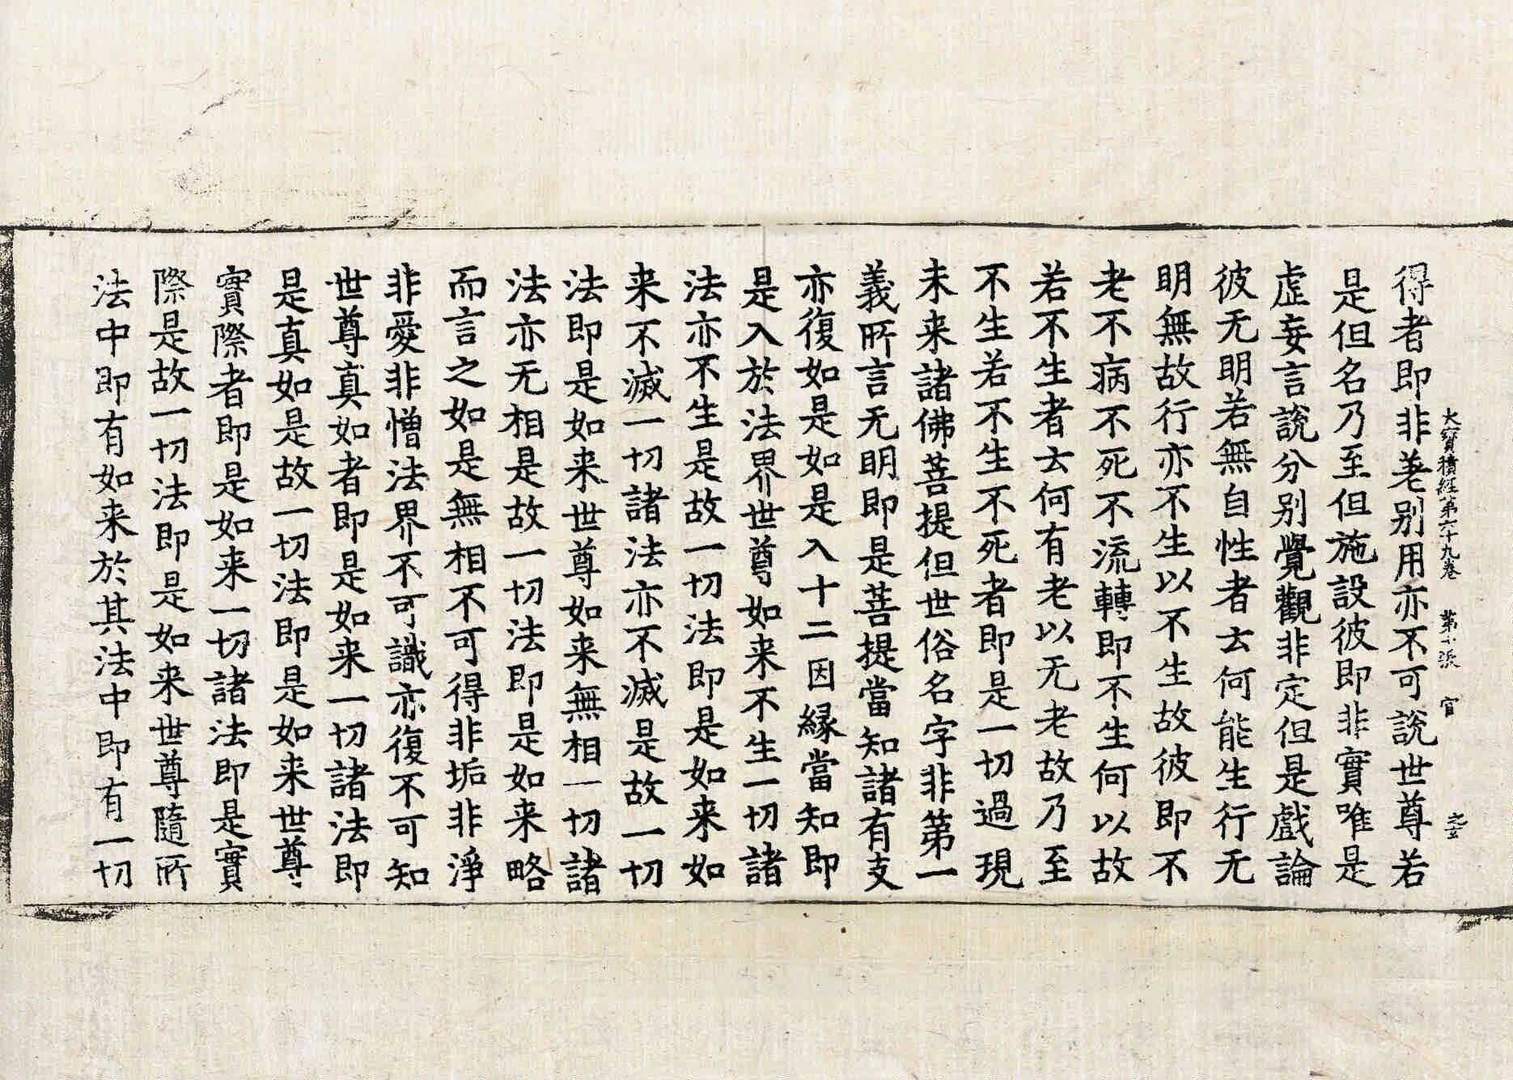 大寳積經第六十九卷　第十張　官　之五
得者即非差别用亦不可說世尊若
是但名乃至但施設彼即非實唯是
虛妄言說分别覺觀非定但是戲論
彼无明若無自性者去何能生行无
明無故行亦不生以不生故彼即不
老不病不死不流轉即不生何以故
若不生者去何有老以无老故乃至
不生若不生不死者即是一切過現
未来諸佛菩提但世俗名字非第一
義所言无明即是菩提當知諸有支
亦復如是如是入十二因緣當知即
是入於法界世尊如来不生一切諸
法亦不生是故一切法即是如来如
来不滅一切諸法亦不滅是故一切
法即是如来世尊如来無相一切諸
法亦无相是故一切法即是如来略
而言之如是無相不可得非垢非淨
非愛非憎法界不可識亦復不可知
世尊真如者即是如来一切諸法即
是真如是故一切法即是如来世尊
實際者即是如来一切諸法即是實
際是故一切法即是如来世尊隨所
法中即有如来於其法中即有一切